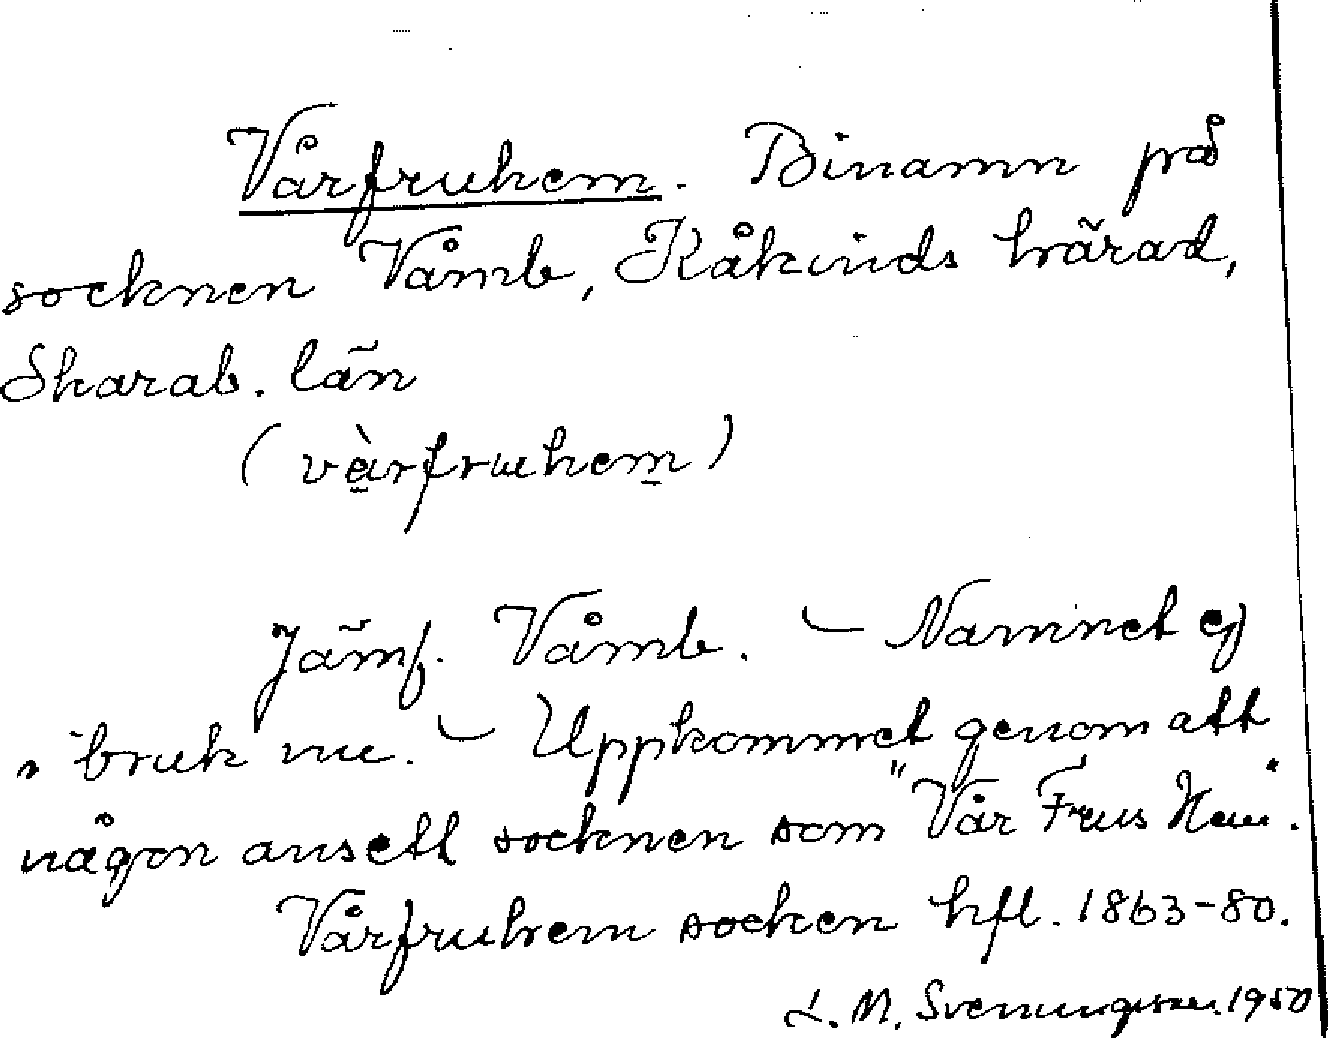 Vårfruhem. Binamn på
socknen Våmb, Kåkinds härad,
Skarab. län
(vàrfruhem)
Jämf. Våmb. – Namnet ej
i bruk nu. – Uppkommet genom att
någon ansett socknen som "Vår Frus Hem".
Vårfruhem socken hfl. 1863-80.
L. M. Svenungsson. 1950